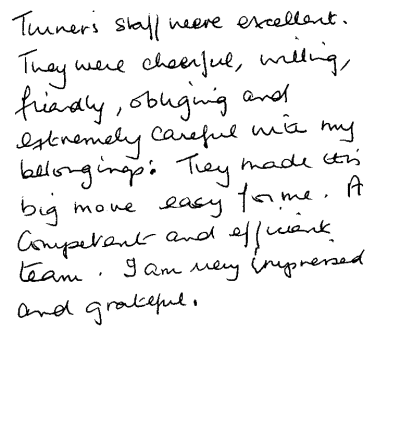 Turner's staff were excellent.
They were cheerful, willing,
friendly, obliging and
extremely careful with my
belongings. They made this
big move easy for me. A
Competent and efficient
team. I am very impressed
and grateful.